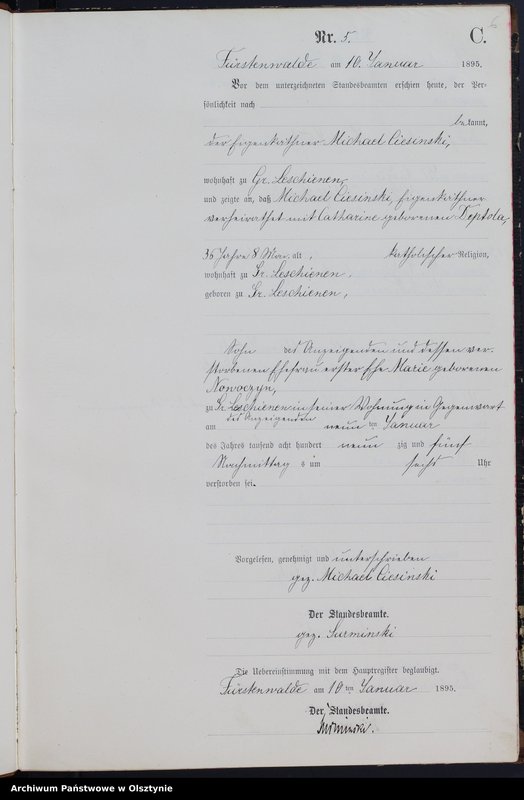 6
Nr. 5. C.
Fürstenwalde am 10. Januar 1895.
Vor dem unterzeichneten Standesbeamten erschien heute, der Per-
sönlichkeit nach
bekannt,
der Eigenkäthner Michael Ciesinski,
wohnhaft zu Gr. Leschienen,
und zeigte an, daß Michael Ciesinski, Eigenkäthner
verheirathet mit Catharine geborenen Deptola,
36 Jahre 8 Mon. alt, katholischer Religion,
wohnhaft zu Gr. Leschienen,
geboren zu Gr. Leschienen,
Sohn des Anzeigenden und dessen ver-
storbenen Ehefrau erster Ehe Marie geborenen
Nowoczyn,
zu Gr. Leschienen in seiner Wohnung in Gegenwart
des Anzeigenden
am neunten Januar
des Jahres tausend acht hundert neunzig und fünf
Nachmittags um sechs Uhr
verstorben sei.
Vorgelesen, genehmigt und unterschrieben
gez. Michael Ciesinski
Der Standesbeamte.
gez. Surminski
Die Uebereinstimmung mit dem Hauptregister beglaubigt.
Fürstenwalde am 10ten Januar 1895.
Der Standesbeamte.
Surminski.
Archiwum Państwowe w Olsztynie